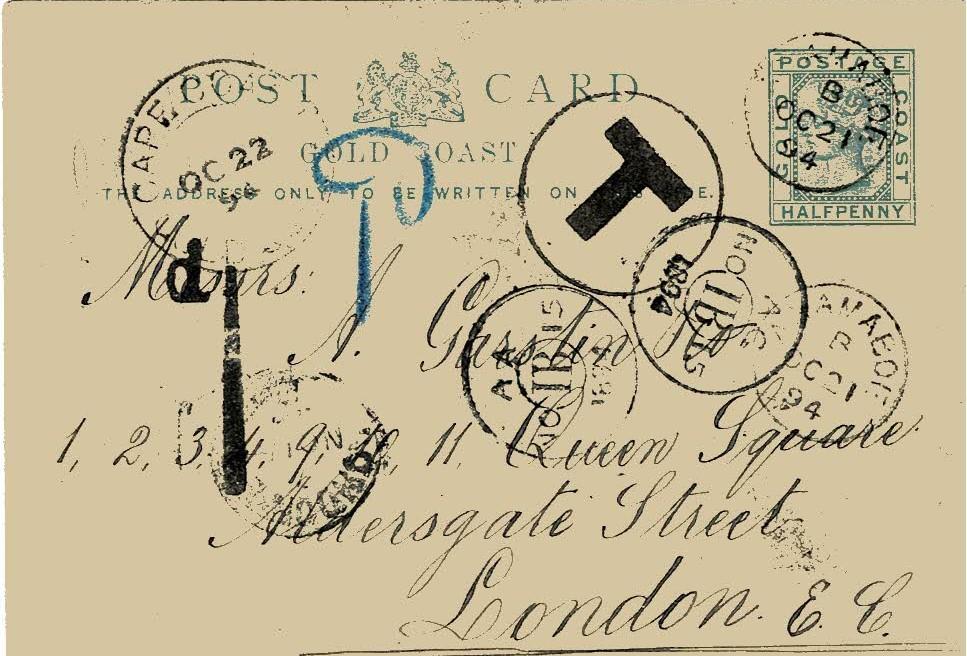 POST CARD
GOLD COAST
THE ADDRESS ONLY TO BE WRITTEN ON
POSTAGE
GOLD COAST
HALFPENNY
B
OC 21
94
CAPE
OC 22
94
T
d
1
Messrs:
A. Garstin & Co
1, 2, 3, 4, 9, 10, 11, Queen Square
Aldersgate Street
London. E. C.
NO 15
IB
1894
NO 15
IB
1894
ANAMABOE
B
OC 21
94